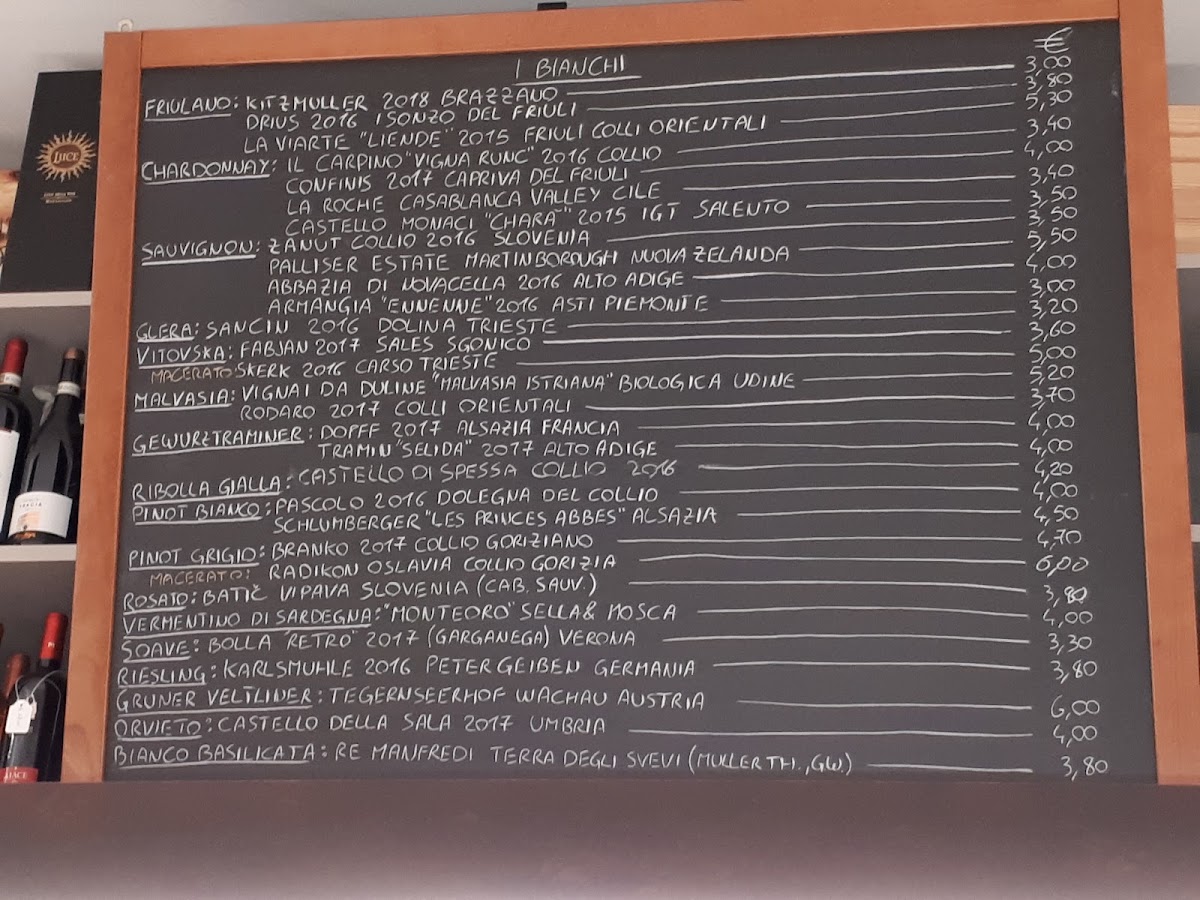 I BIANCHI €
FRIULANO: KITZMULLER 2018 BRAZZANO 3,00
DRIUS 2016 ISONZO DEL FRIULI 3,80
LA VIARTE "LIENDE" 2015 FRIULI COLLI ORIENTALI 5,30
CHARDONNAY: IL CARPINO "VIGNA RUNC" 2016 COLLIO 3,40
CONFINIS 2017 CAPRIVA DEL FRIULI 4,00
LA ROCHE CASABLANCA VALLEY CILE 3,40
CASTELLO MONACI "CHARA" 2015 IGT SALENTO 3,50
SAUVIGNON: ZANUT COLLIO 2016 SLOVENIA 3,50
PALLISER ESTATE MARTINBOROUGH NUOVA ZELANDA 5,50
ABBAZIA DI NOVACELLA 2016 ALTO ADIGE 4,00
ARMANGIA "ENNENNE" 2016 ASTI PIEMONTE 3,00
GLERA: SANCIN 2016 DOLINA TRIESTE 3,20
VITOVSKA: FABJAN 2017 SALES SGONICO 3,60
MACERATO: SKERK 2016 CARSO TRIESTE 5,00
MALVASIA: VIGNAI DA DULINE "MALVASIA ISTRIANA" BIOLOGICA UDINE 5,20
RODARO 2017 COLLI ORIENTALI 3,70
GEWURZTRAMINER: DOPFF 2017 ALSAZIA FRANCIA 4,00
TRAMIN "SELIDA" 2017 ALTO ADIGE 4,00
RIBOLLA GIALLA: CASTELLO DI SPESSA COLLIO 2016 4,20
PINOT BIANCO: PASCOLO 2016 DOLEGNA DEL COLLIO 4,00
SCHLUMBERGER "LES PRINCES ABBES" ALSAZIA 4,50
PINOT GRIGIO: BRANKO 2017 COLLIO GORIZIANO 4,70
MACERATO: RADIKON OSLAVIA COLLIO GORIZIA 6,00
ROSATO: BATIČ VIPAVA SLOVENIA (CAB. SAUV.) 3,80
VERMENTINO DI SARDEGNA: "MONTEORO" SELLA & MOSCA 4,00
SOAVE: BOLLA "RETRO" 2017 (GARGANEGA) VERONA 3,30
RIESLING: KARLSMUHLE 2016 PETER GEIBEN GERMANIA 3,80
GRUNER VELTLINER: TEGERNSEERHOF WACHAU AUSTRIA 6,00
ORVIETO: CASTELLO DELLA SALA 2017 UMBRIA 4,00
BIANCO BASILICATA: RE MANFREDI TERRA DEGLI SVEVI (MULLER TH., GW.) 3,80
LUCE